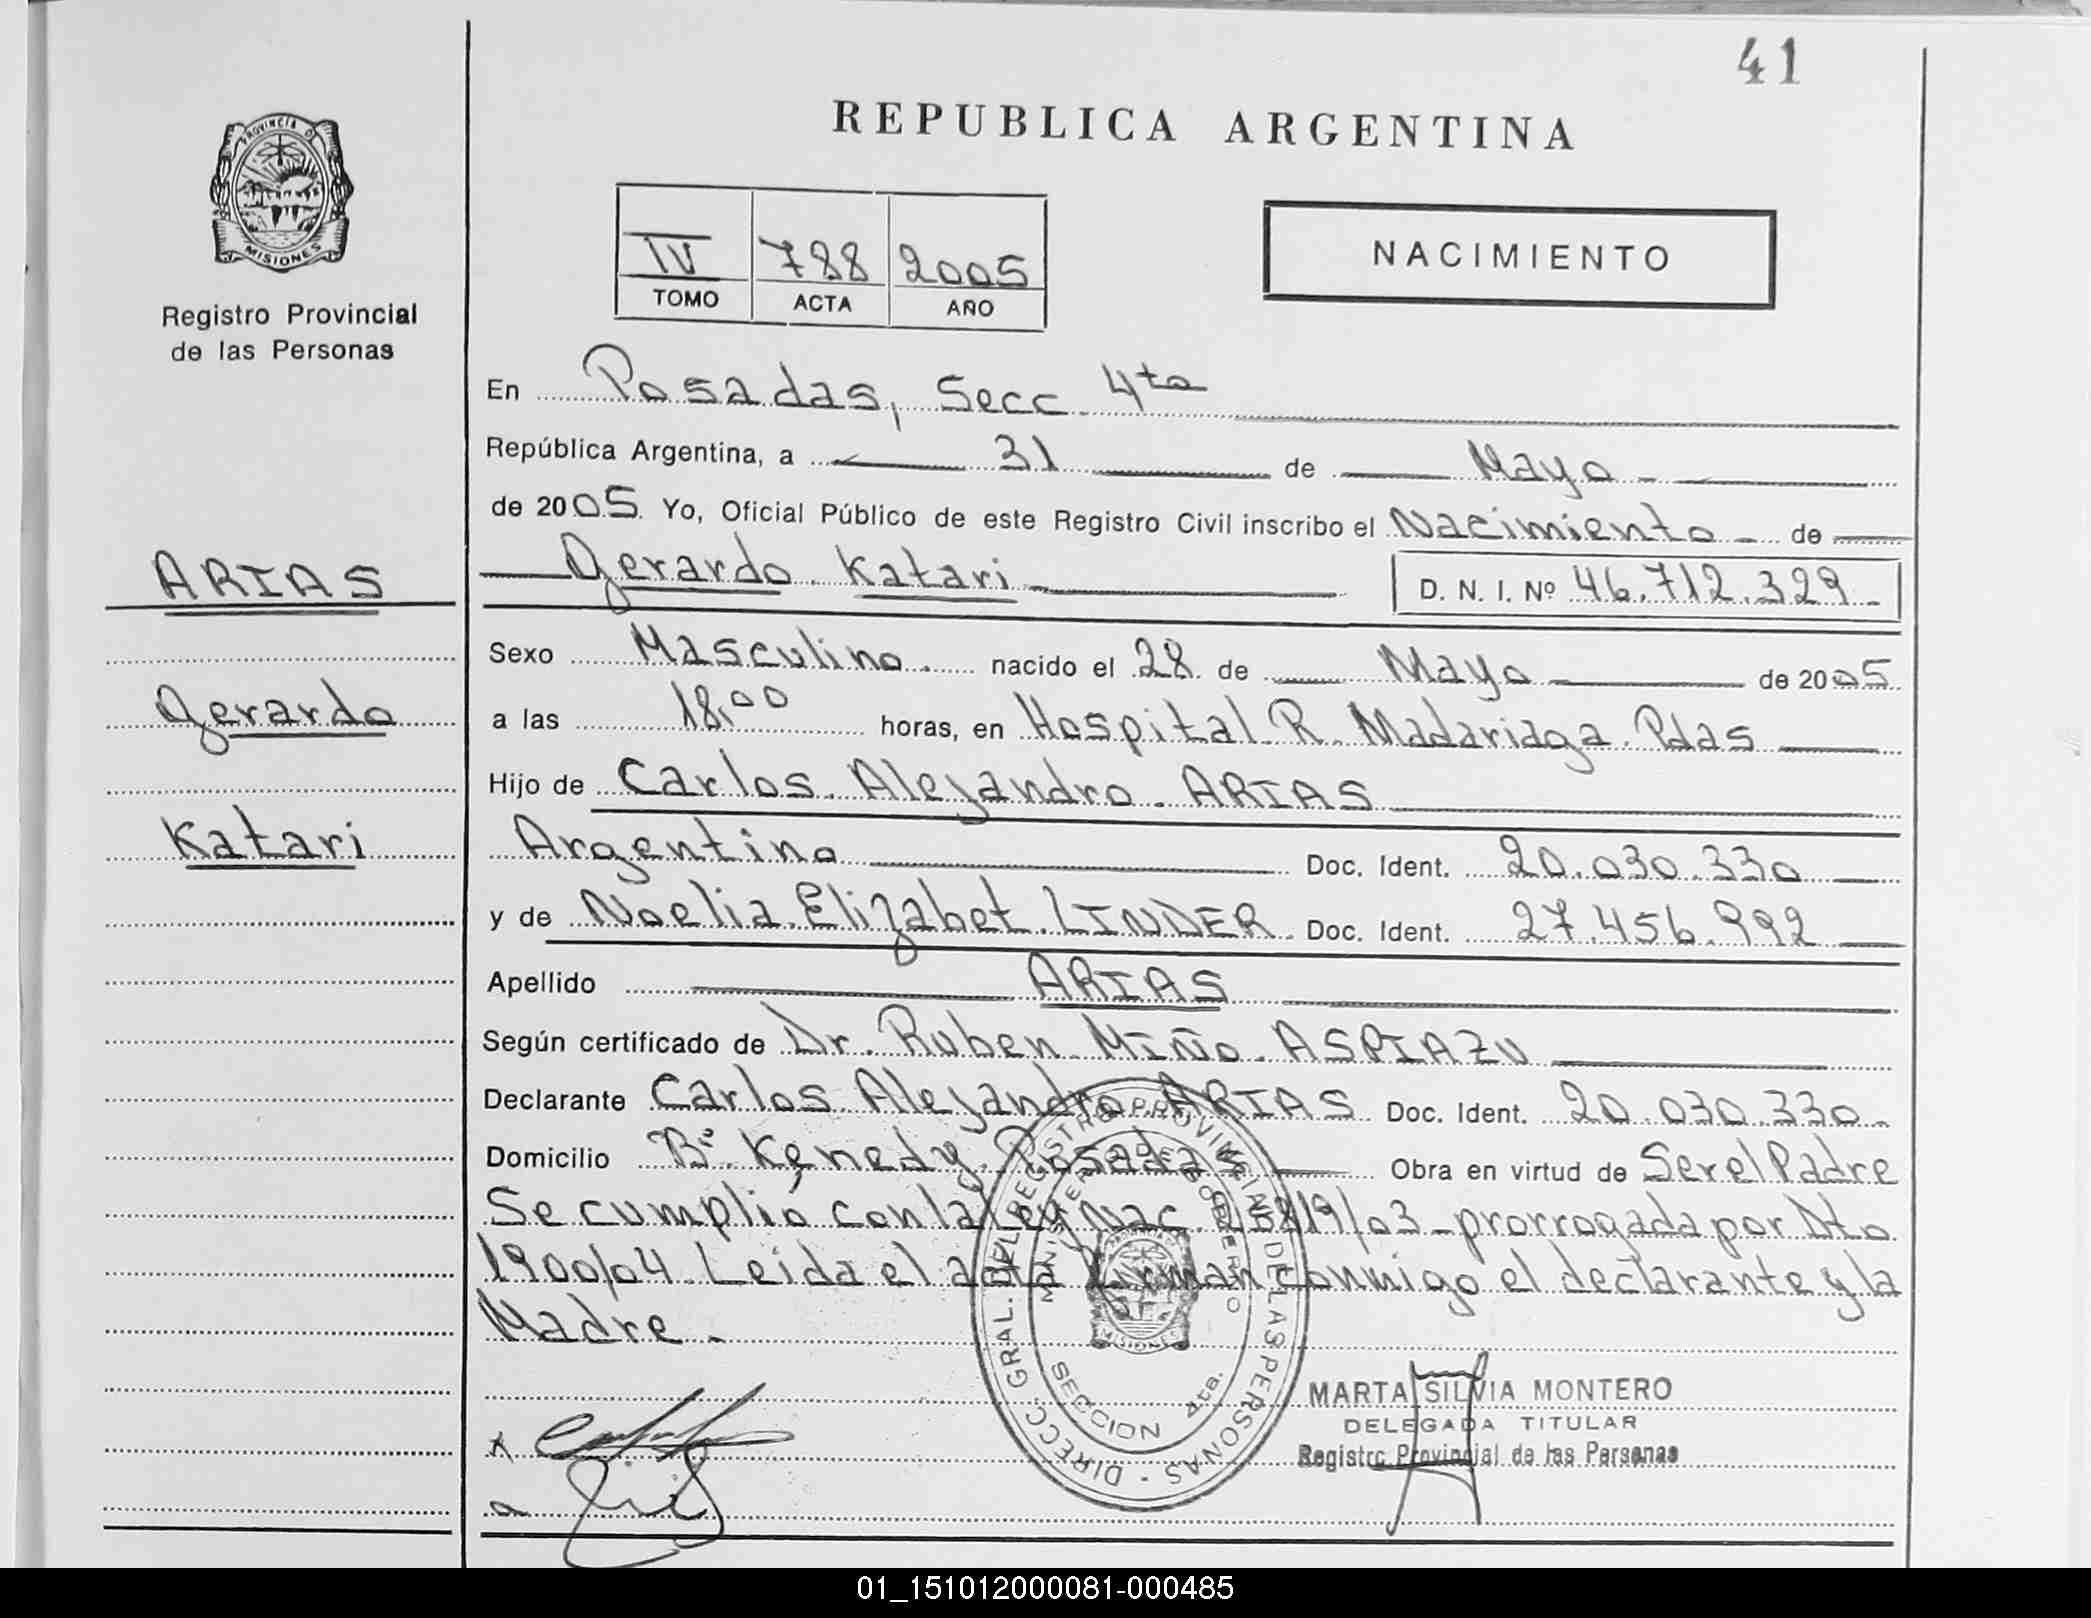 41
REPUBLICA ARGENTINA
PROVINCIA D
MISIONES
Registro Provincial
de las Personas
IV 788 2005
TOMO ACTA AÑO
NACIMIENTO
En Posadas, Secc. 4ta
República Argentina, a 31 de Mayo
de 2005. Yo, Oficial Público de este Registro Civil inscribo el Nacimiento de
ARIAS
Gerardo Katari D. N. I. Nº 46.712.329
Sexo Masculino. nacido el 28 de Mayo de 2005
Gerardo
a las 18,00 horas, en Hospital R. Madariaga. Pdas
Hijo de Carlos Alejandro ARIAS
Katari
Argentino Doc. Ident. 20.030.330
y de Noelia Elizabet LINDER. Doc. Ident. 27.456.992
Apellido ARIAS
Según certificado de Dr. Ruben Miño ASPIAZU
Declarante Carlos Alejandro ARIAS Doc. Ident. 20.030.330
Domicilio Bº Kenedy Posadas Obra en virtud de Ser el Padre
Se cumplió con la Ley Nac 25819/03 - prorrogada por Dto
1900/04. Leida el acta firman conmigo el declarante y la
Madre.
DIRECC. GRAL. DEL REGISTRO PROVINCIAL DE LAS PERSONAS
MINISTERIO DE GOBIERNO
MISIONES
SECCION 4ta.
MARTA SILVIA MONTERO
DELEGADA TITULAR
Registro Provincial de las Personas
01_151012000081-000485